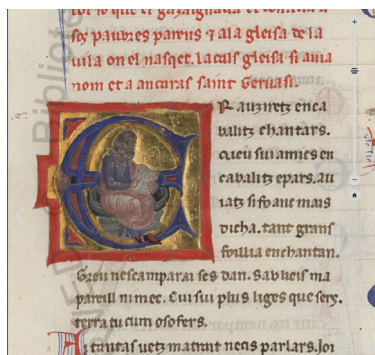 sos paubres parens ⁊ a la gleisa de la
uila on el nasqet. la cals gleisa si auia
nom et a ancaras saint Geruasi.
R auziretz enca
balitz chantars.
Qieu sui amics en
cabalitz epars. au
iatz si fo anc mais
dicha. tant grans
foillia en chantan.
Greu nescamparai ses dan. Sab ueis ma
pareill ni mec. Cui sui plus liges que sers.
terra tu cum o sofers.
tantas uetz matrait necis parlars. Ioi